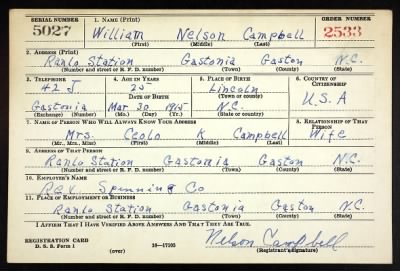 SERIAL NUMBER 1. NAME (Print) ORDER NUMBER
5027 William Nelson Campbell 2533
(First) (Middle) (Last)
2. ADDRESS (Print)
Ranlo Station Gastonia Gaston N.C.
(Number and street or R. F. D. number) (Town) (County) (State)
3. TELEPHONE 4. AGE IN YEARS 5. PLACE OF BIRTH 6. COUNTRY OF CITIZENSHIP
42 J 25 Lincoln
DATE OF BIRTH (Town or county) U.S.A
Gastonia Mar 30 1915 N.C.
(Exchange) (Number) (Mo.) (Day) (Yr.) (State or country)
7. NAME OF PERSON WHO WILL ALWAYS KNOW YOUR ADDRESS 8. RELATIONSHIP OF THAT PERSON
Mrs. K Campbell Wife
(Mr., Mrs., Miss) (First) (Middle) (Last)
9. ADDRESS OF THAT PERSON
Ranlo Station Gastonia Gaston N.C.
(Number and street or R. F. D. number) (Town) (County) (State)
10. EMPLOYER'S NAME
Rex Spinning Co
11. PLACE OF EMPLOYMENT OR BUSINESS
Ranlo Station Gastonia Gaston N.C.
(Number and street or R. F. D. number) (Town) (County) (State)
I AFFIRM THAT I HAVE VERIFIED ABOVE ANSWERS AND THAT THEY ARE TRUE.
Nelson Campbell
REGISTRATION CARD
D. S. S. Form 1 (over) 16—17105 (Registrant's signature)